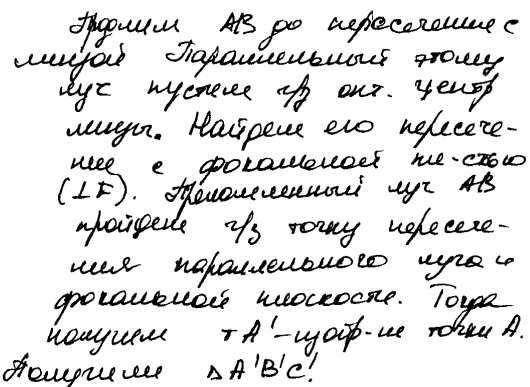 Продлим AB до пересечения с
линзой Параллельный этому
луч пустим ч/з опт. центр
линзы. Найдем его пересече-
ние с фокальной пл-стью
(⊥F). Преломленный луч AB
пройдет ч/з точку пересече-
ния параллельного луча и
фокальной плоскости. Тогда
получим т A' -изобр-ие точки A.
Получили ΔA'B'C'.